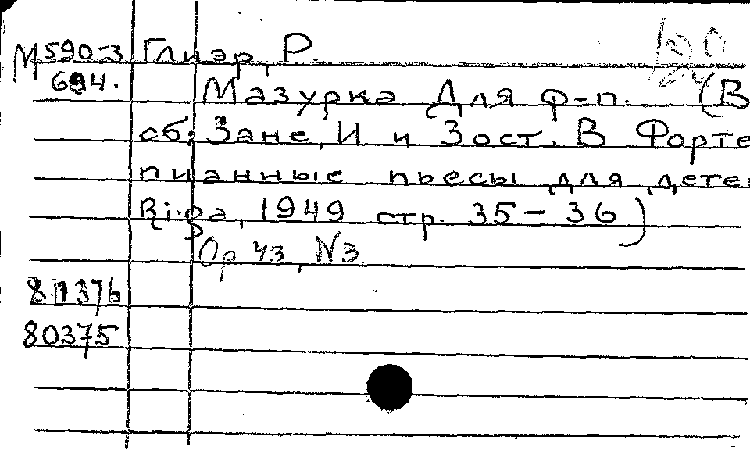 М 590-3 Глиэр, Р.
694.
Мазурка Для ф-п. (В
сб: Зане, И и Зост. В Форте
пианные пьесы для дете
Riga, 1949 стр. 35-36)
Op 43, N3
81376
80375